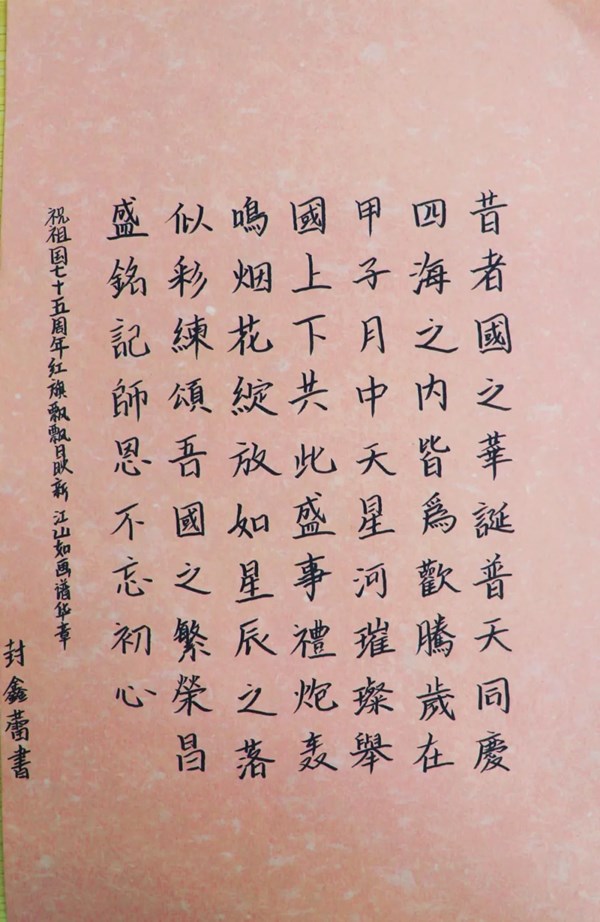 昔者國之華誕普天同慶
四海之内皆爲歡騰歲在
甲子月中天星河璀璨舉
國上下共此盛事禮炮轰
鳴烟花綻放如星辰之落
似彩練頌吾國之繁榮昌
盛銘記師恩不忘初心
祝祖国七十五周年红旗飘飘日映新 江山如画谱华章
封鑫蕾書